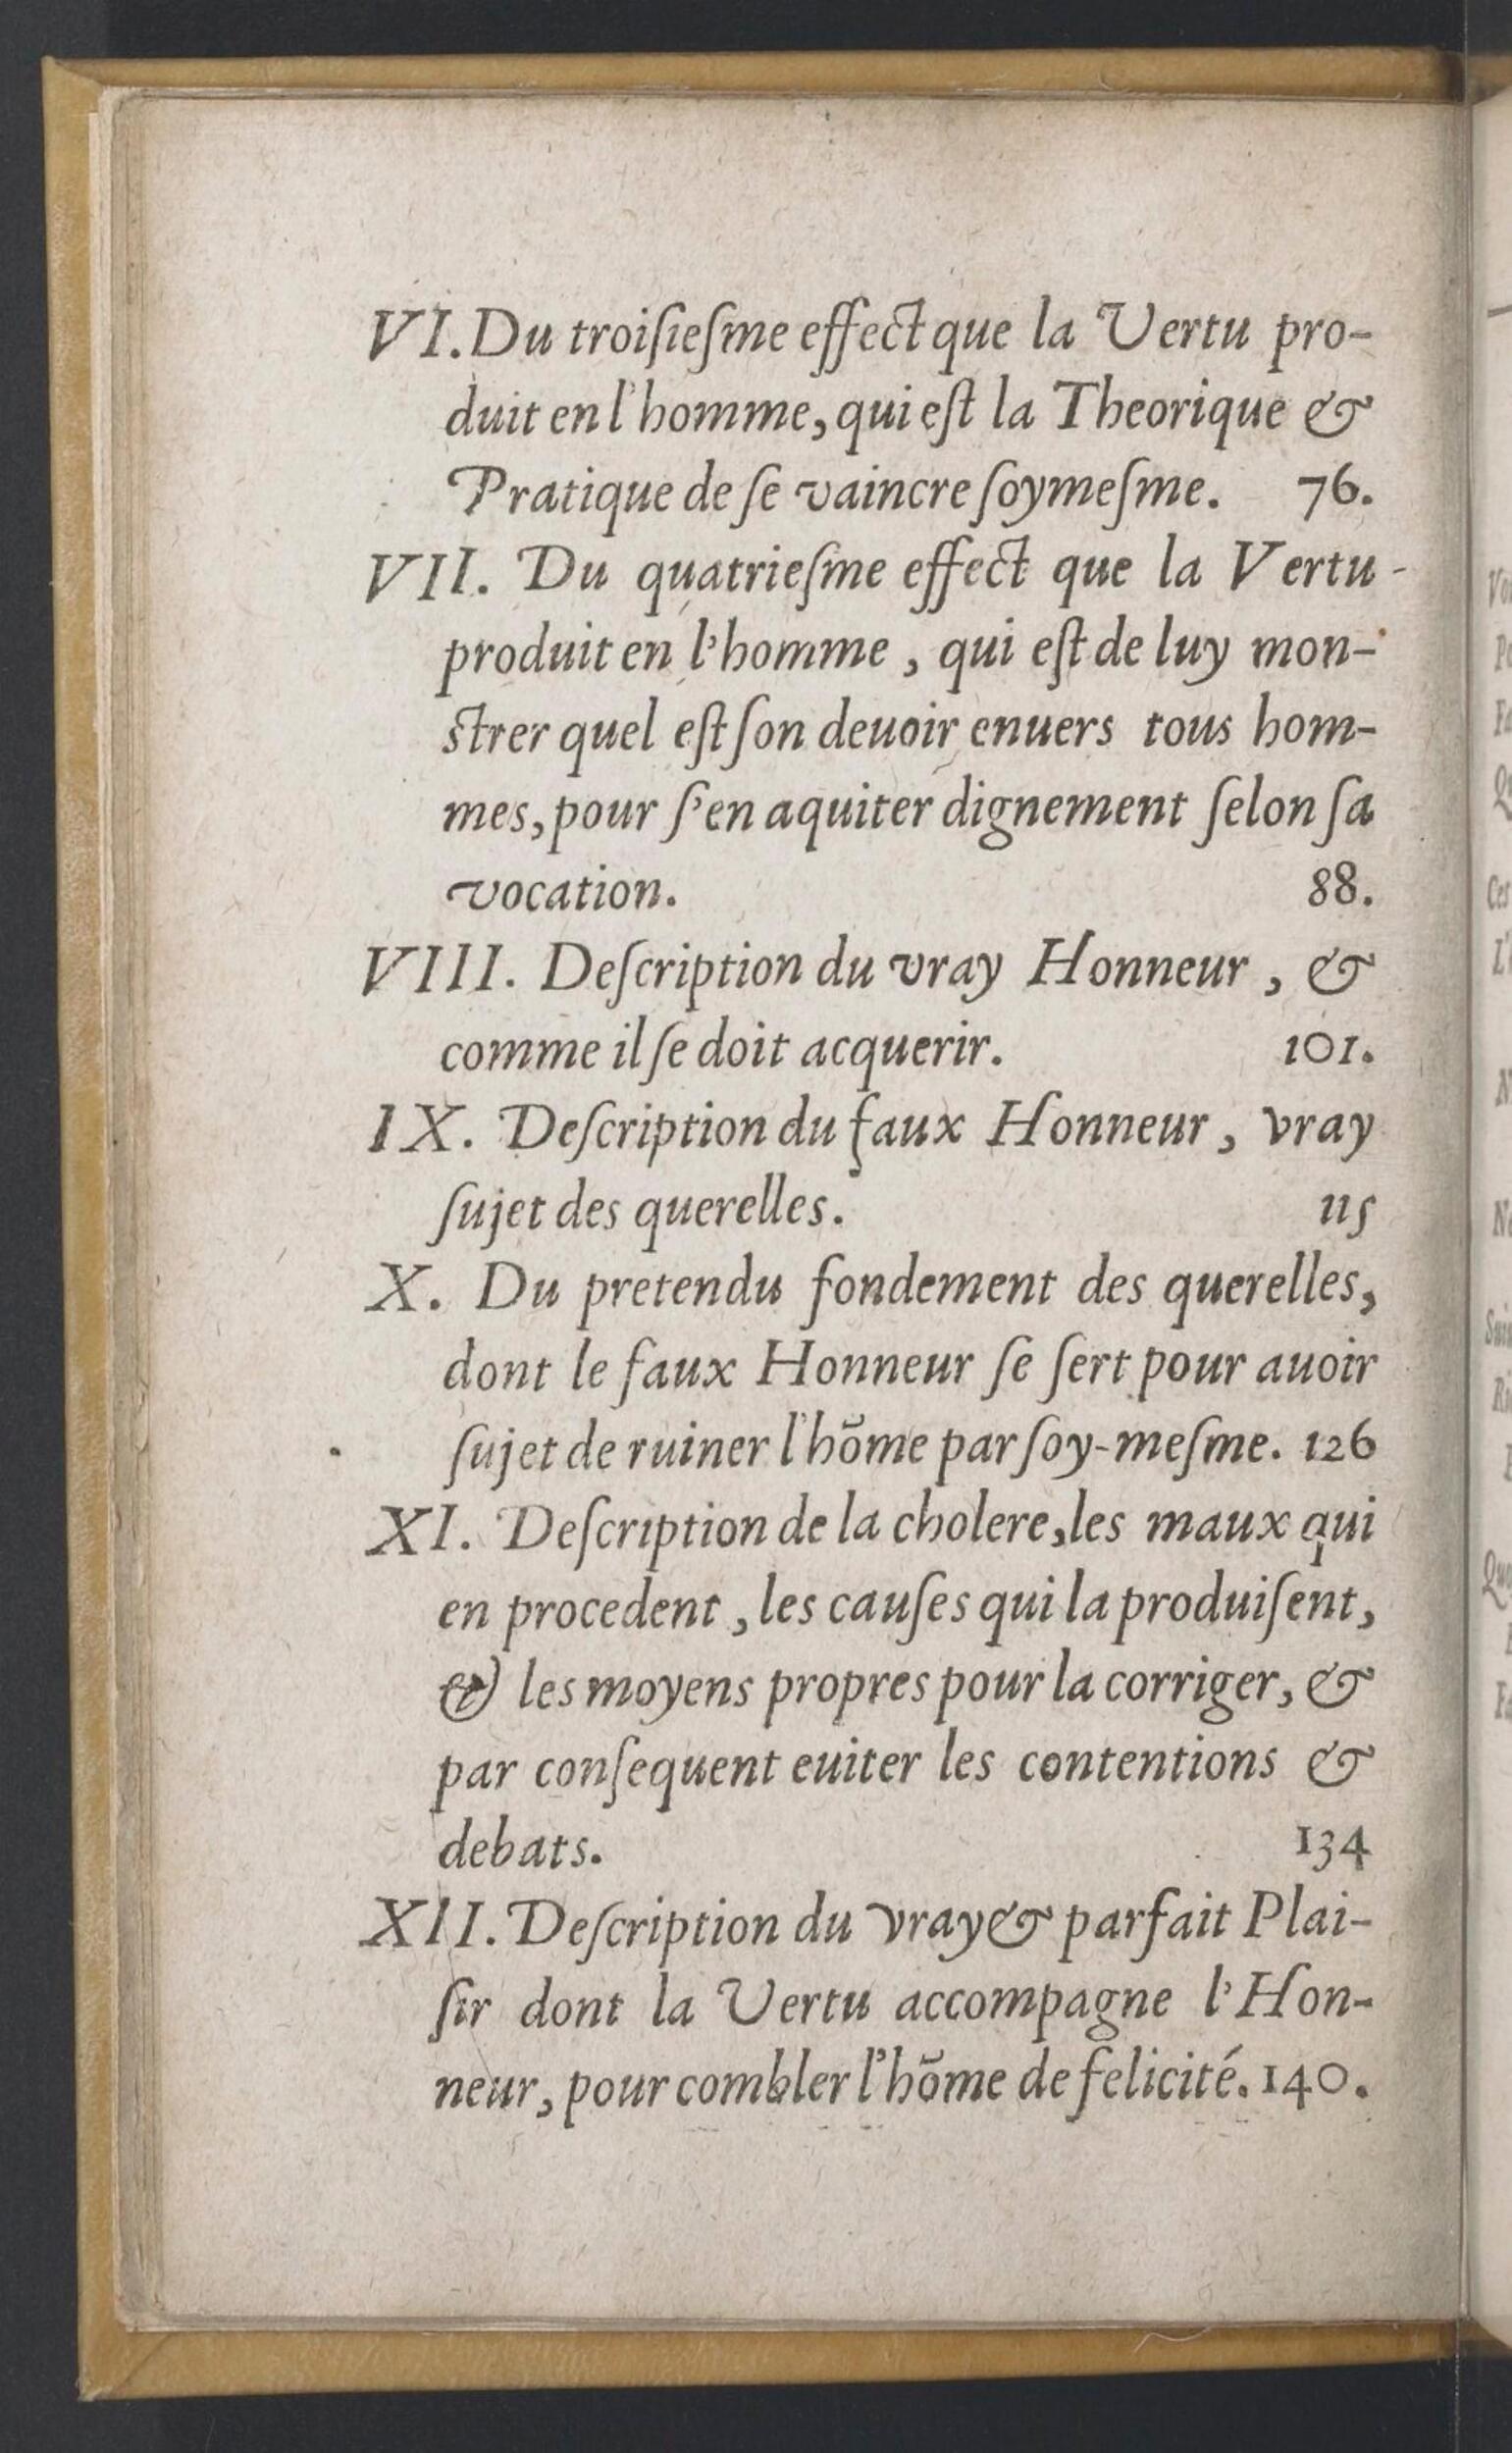 VI. Du troiſieſme effect que la Vertu pro-
duit en l'homme, qui eſt la Theorique &
Pratique de ſe vaincre ſoymeſme. 76.
VII. Du quatrieſme effect que la Vertu
produit en l'homme, qui eſt de luy mon-
ſtrer quel eſt ſon deuoir enuers tous hom-
mes, pour ſ'en aquiter dignement ſelon ſa
vocation. 88.
VIII. Deſcription du vray Honneur, &
comme il ſe doit acquerir. 101.
IX. Deſcription du faux Honneur, vray
ſujet des querelles. 115
X. Du pretendu fondement des querelles,
dont le faux Honneur ſe ſert pour auoir
ſujet de ruiner l'hõme par ſoy-meſme. 126
XI. Deſcription de la cholere, les maux qui
en procedent, les cauſes qui la produiſent,
& les moyens propres pour la corriger, &
par conſequent euiter les contentions &
debats. 134
XII. Deſcription du vray & parfait Plai-
ſir dont la Vertu accompagne l'Hon-
neur, pour combler l'hõme de felicité. 140.